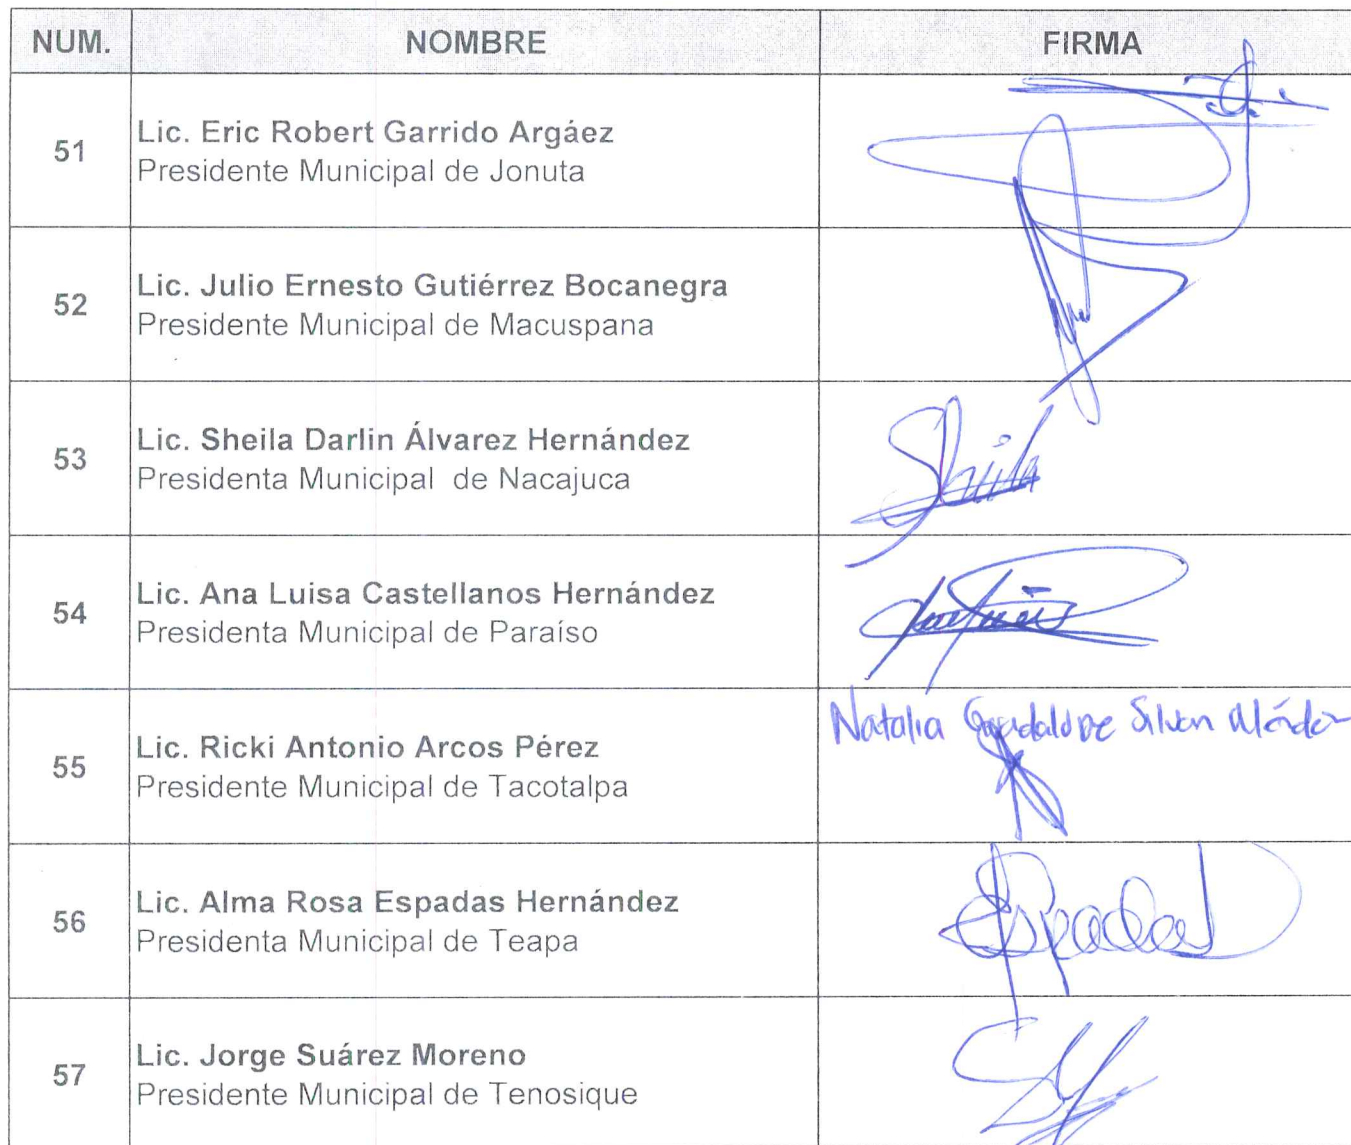 NUM. NOMBRE FIRMA
51
Lic. Eric Robert Garrido Argáez
Presidente Municipal de Jonuta
52
Lic. Julio Ernesto Gutiérrez Bocanegra
Presidente Municipal de Macuspana
53
Lic. Sheila Darlin Álvarez Hernández
Presidenta Municipal de Nacajuca
Sheila
54
Lic. Ana Luisa Castellanos Hernández
Presidenta Municipal de Paraíso
55
Lic. Ricki Antonio Arcos Pérez
Presidente Municipal de Tacotalpa
Natalia Guadalupe Silvan Méndez
56
Lic. Alma Rosa Espadas Hernández
Presidenta Municipal de Teapa
Espadas
57
Lic. Jorge Suárez Moreno
Presidente Municipal de Tenosique